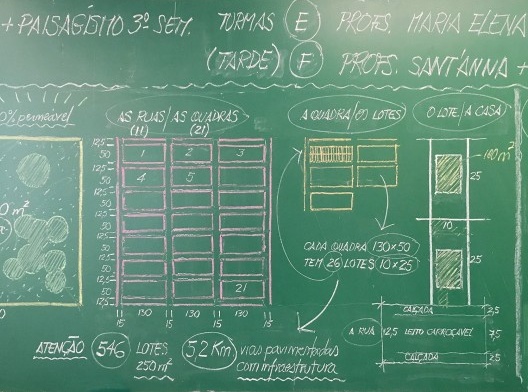 + PAISAGÍSMO 3º SEM. TURMAS E PROFS. MARIA ELENA
(TARDE) F PROFS. SANT'ÁNNA +
0% permeável
AS RUAS / AS QUADRAS
(11) (21)
A QUADRA / OS LOTES
O LOTE / A CASA
12,5
50
12,5
50
12,5
50
12,5
50
12,5
50
12,5
50
12,5
50
12,5
1 2 3
4 5
21
130 130 130
15 15 15 15
0 m²
m²
25
10
25
CADA QUADRA 130 x 50
TEM 26 LOTES 10 x 25
CALÇADA 2,5
A RUA 12,5 LEITO CARROÇÁVEL 7,5
CALÇADA 2,5
ATENÇÃO 546 LOTES
250 m²
5,2 Km vias pavimentadas
com infraestrutura